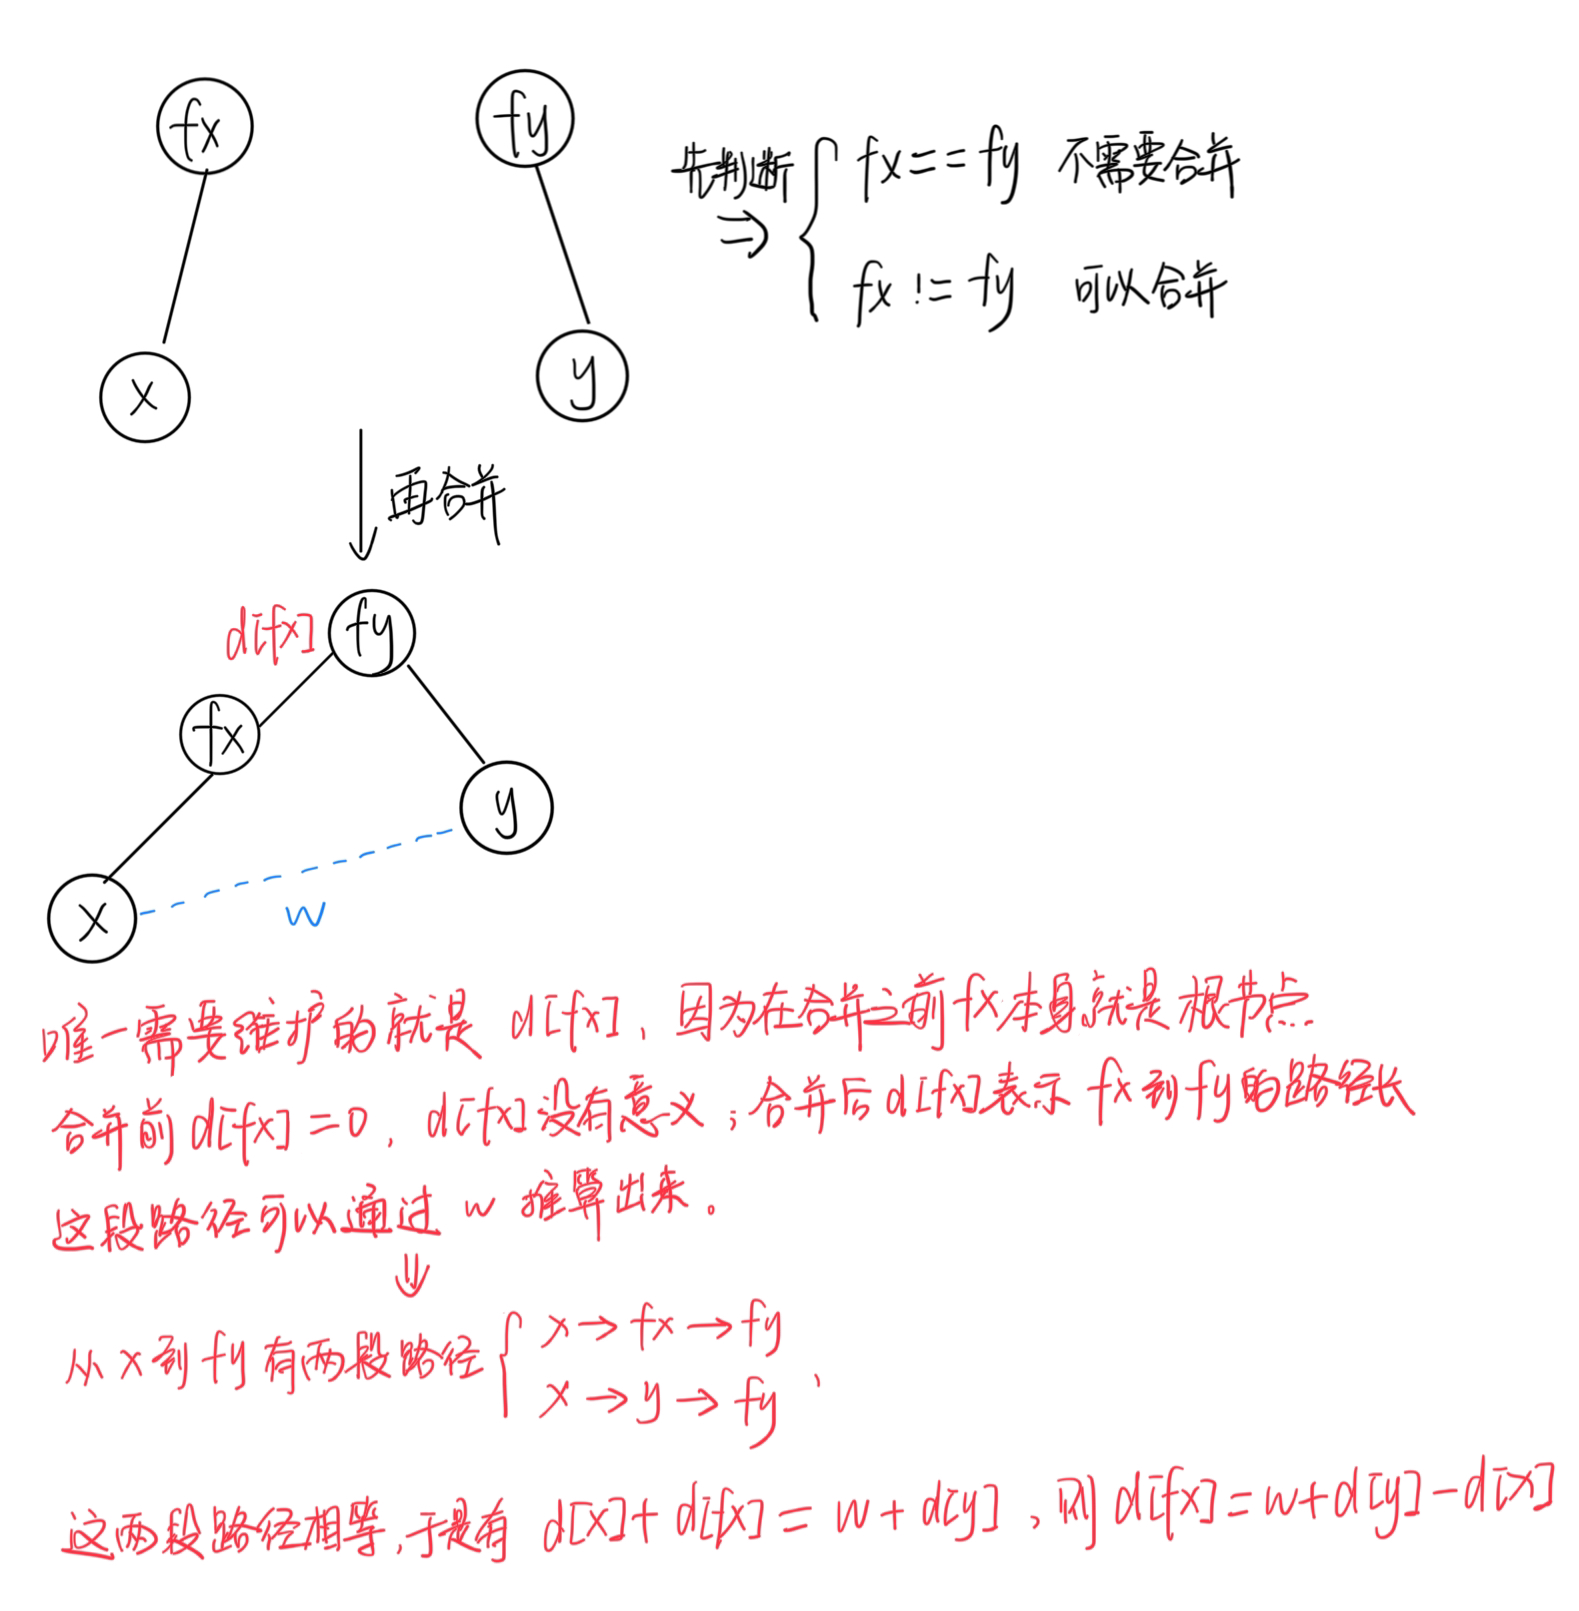 fx
fy
先判断 ⇒ { fx==fy 不需要合并
fx != fy 可以合并
x
y
再合并
d[fx]
fy
fx
y
x
w
唯一需要维护的就是 d[fx], 因为在合并之前fx本身就是根节点
合并前 d[fx]=0, d[fx]没有意义; 合并后d[fx]表示 fx到fy的路径长
这段路径可以通过 w 推算出来。
⇓
从x到fy有两段路径 { x→fx→fy
x→y→fy ,
这两段路径相等,于是有 d[x]+d[fx]=w+d[y], 则d[fx]=w+d[y]-d[x]